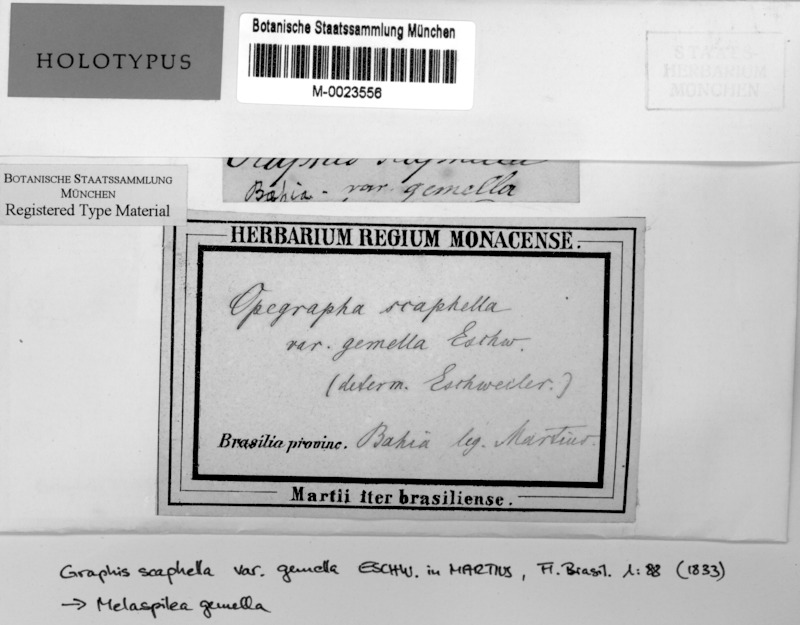 HOLOTYPUS
Botanische Staatssammlung München
M-0023556
STAATS-
HERBARIUM
MÜNCHEN
Graphis scaphella
Bahia - var. gemella
BOTANISCHE STAATSSAMMLUNG
MÜNCHEN
Registered Type Material
HERBARIUM REGIUM MONACENSE.
Opegrapha scaphella
var. gemella Eschw.
(determ. Eschweiler.)
Brasilia provinc. Bahia leg. Martius.
Martii Iter brasiliense.
Graphis scaphella var. gemella ESCHW. in MARTIUS, Fl. Brasil. 1: 88 (1833)
→ Melaspilea gemella